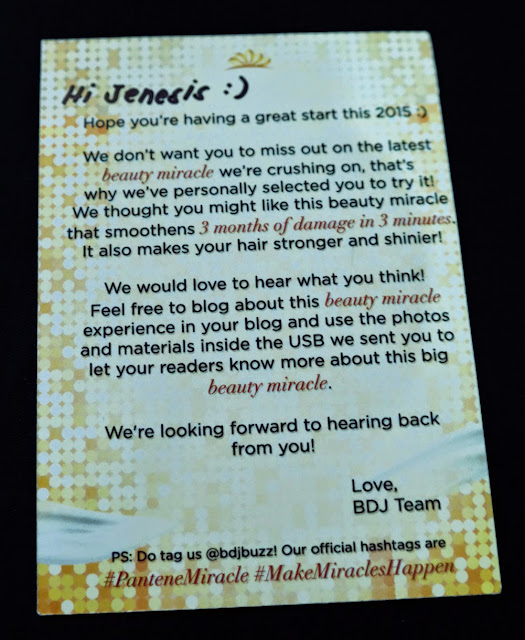 Hi Jenesis :)
Hope you're having a great start this 2015 :)
We don't want you to miss out on the latest
beauty miracle we're crushing on, that's
why we've personally selected you to try it!
We thought you might like this beauty miracle
that smoothens 3 months of damage in 3 minutes.
It also makes your hair stronger and shinier!
We would love to hear what you think!
Feel free to blog about this beauty miracle
experience in your blog and use the photos
and materials inside the USB we sent you to
let your readers know more about this big
beauty miracle.
We're looking forward to hearing back
from you!
Love,
BDJ Team
PS: Do tag us @bdjbuzz! Our official hashtags are
#PanteneMiracle #MakeMiraclesHappen